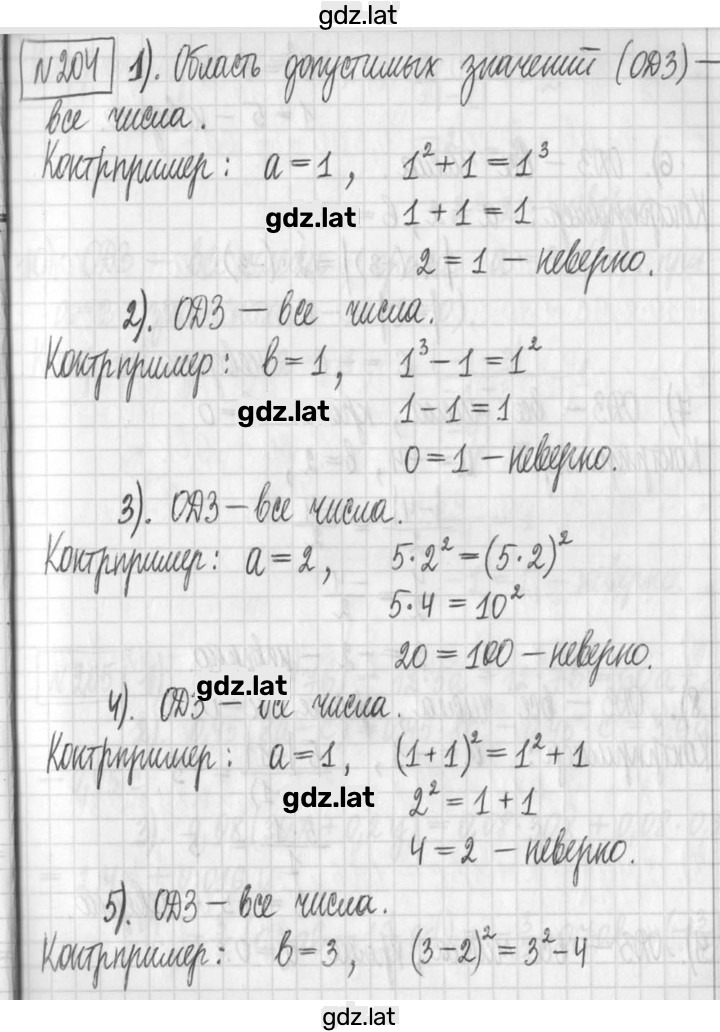 gdz.lat
№204 1). Область допустимых значений (ОДЗ) –
все числа.
Контрпример: a = 1, 1² + 1 = 1³
gdz.lat 1 + 1 = 1
2 = 1 – неверно.
2). ОДЗ – все числа.
Контрпример: в = 1, 1³ – 1 = 1²
gdz.lat 1 – 1 = 1
0 = 1 – неверно.
3). ОДЗ – все числа.
Контрпример: a = 2, 5·2² = (5·2)²
5·4 = 10²
20 = 100 – неверно.
gdz.lat
4). ОДЗ – все числа.
Контрпример: a = 1, (1+1)² = 1² + 1
gdz.lat 2² = 1 + 1
4 = 2 – неверно.
5). ОДЗ – все числа.
Контрпример: в = 3, (3–2)² = 3² – 4
gdz.lat